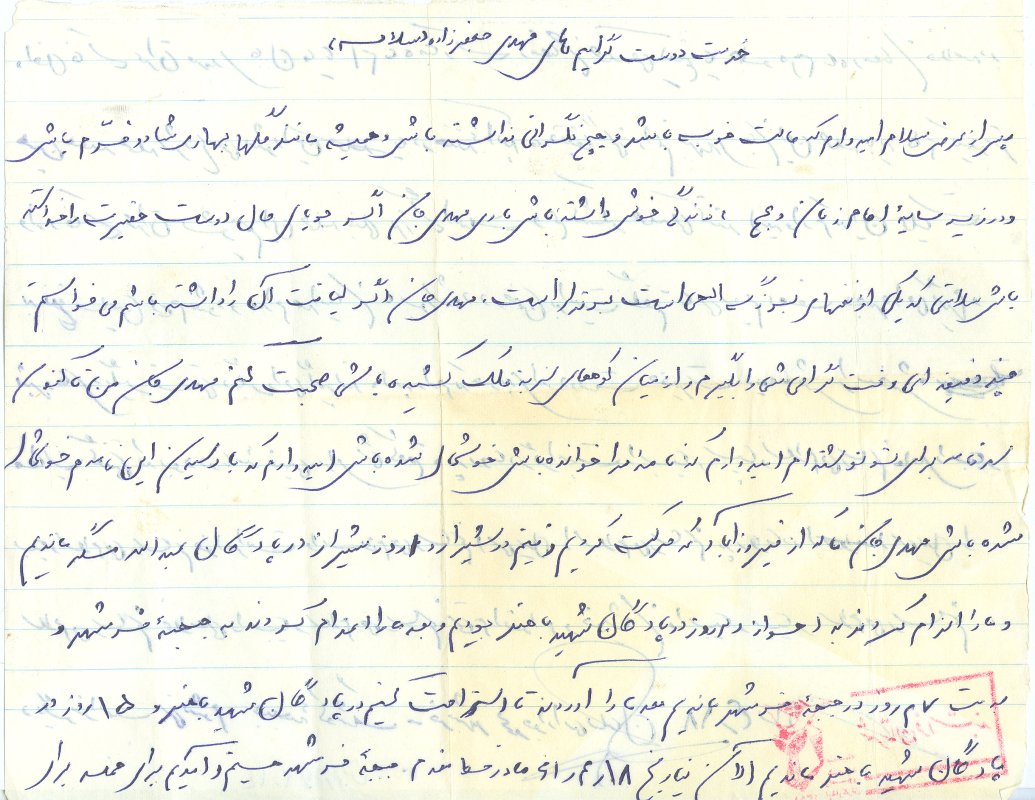 خدمت دوست گرامیم آقای مهدی جعفرزاده اسلام
پس از عرض سلام امیدوارم که حالت خوب باشد و هیچ نگرانی نداشته باشی و همیشه مانند گلها بهاری شاد و خرم باشی
و در زیر سایهٔ امام زمان و عج زندگی خوشی داشته باشی باری مهدی جان اگر جویای حال دوست حقیرت را خواسته
باشی سلامتی که یکی از نعمتهای بزرگ الهی است برقرار است. مهدی جان اگر لیاقت آن را داشته باشم می خواستم
چند دقیقه ای وقت گرامی شما را بگیرم و از میان کوههای سر به فلک کشیده باشی صحبت کنم مهدی جان من تا کنون
سه نامه برای تو نوشته ام امیدوارم که نامه را خوانده باشی خوشحال شده باشی امیدوارم که با رسیدن این نامه خوشحال
شده باشی مهدی جان ما که از فیروزآباد که حرکت کردیم رفتیم در شیراز و روز شیراز در پادگان عبدالله مسگر ماندیم
و ما را اعزام کردند به اهواز و روز در پادگان شهید باهنر بودیم و بعد ما را اعزام کردند به جبههٔ خرمشهر و
مدت روز در جبههٔ خرمشهر ماندیم بعد ما را آوردند تا استراحت کنیم در پادگان شهید باهنر و ۱۵ روز در
پادگان شهید باهنر ماندیم الآن بتاریخ در خط مقدم جبههٔ خرمشهر هستیم و آمدیم برای حمله برای